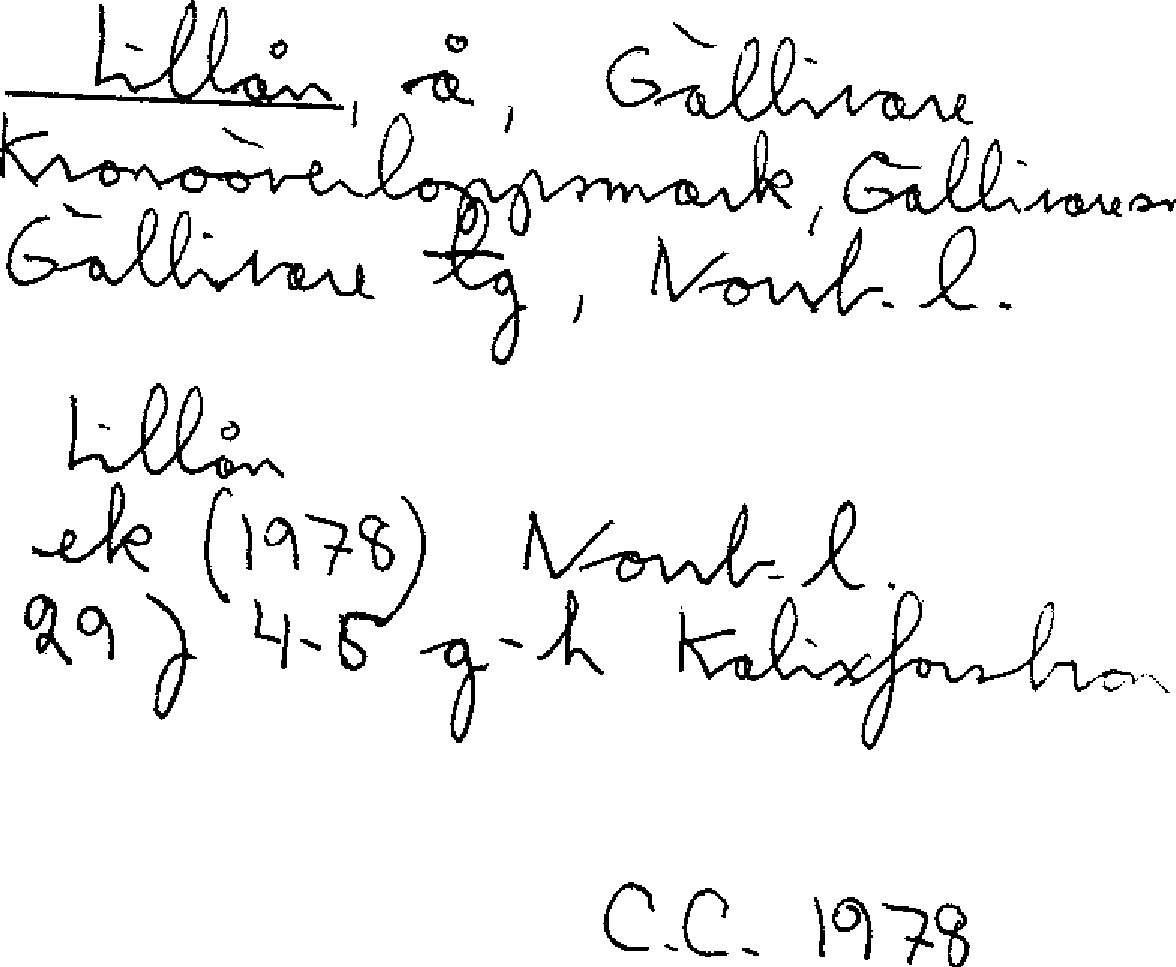 Lillån, å, Gällivare
Kronoöverloppsmark, Gällivaresn
Gällivare tg, Norrb. l.
Lillån
ek (1978) Norrb. l.
29 J 4-5 g-h Kalixforsbron
C.C. 1978